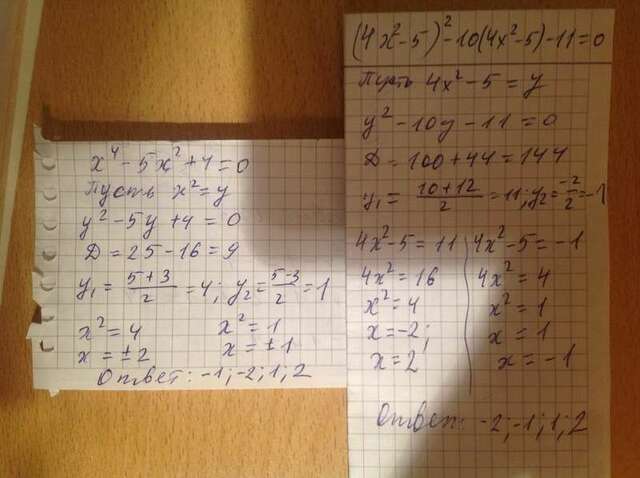 x⁴ - 5x² + 4 = 0
Пусть x² = y
y² - 5y + 4 = 0
D = 25 - 16 = 9
y₁ = (5+3)/2 = 4; y₂ = (5-3)/2 = 1
x² = 4 x² = 1
x = ±2 x = ±1
Ответ: -1; -2; 1; 2
(4x² - 5)² - 10(4x² - 5) - 11 = 0
Пусть 4x² - 5 = y
y² - 10y - 11 = 0
D = 100 + 44 = 144
y₁ = (10+12)/2 = 11; y₂ = -2/2 = -1
4x² - 5 = 11 4x² - 5 = -1
4x² = 16 4x² = 4
x² = 4 x² = 1
x = -2; x = 1
x = 2 x = -1
Ответ: -2; -1; 1; 2